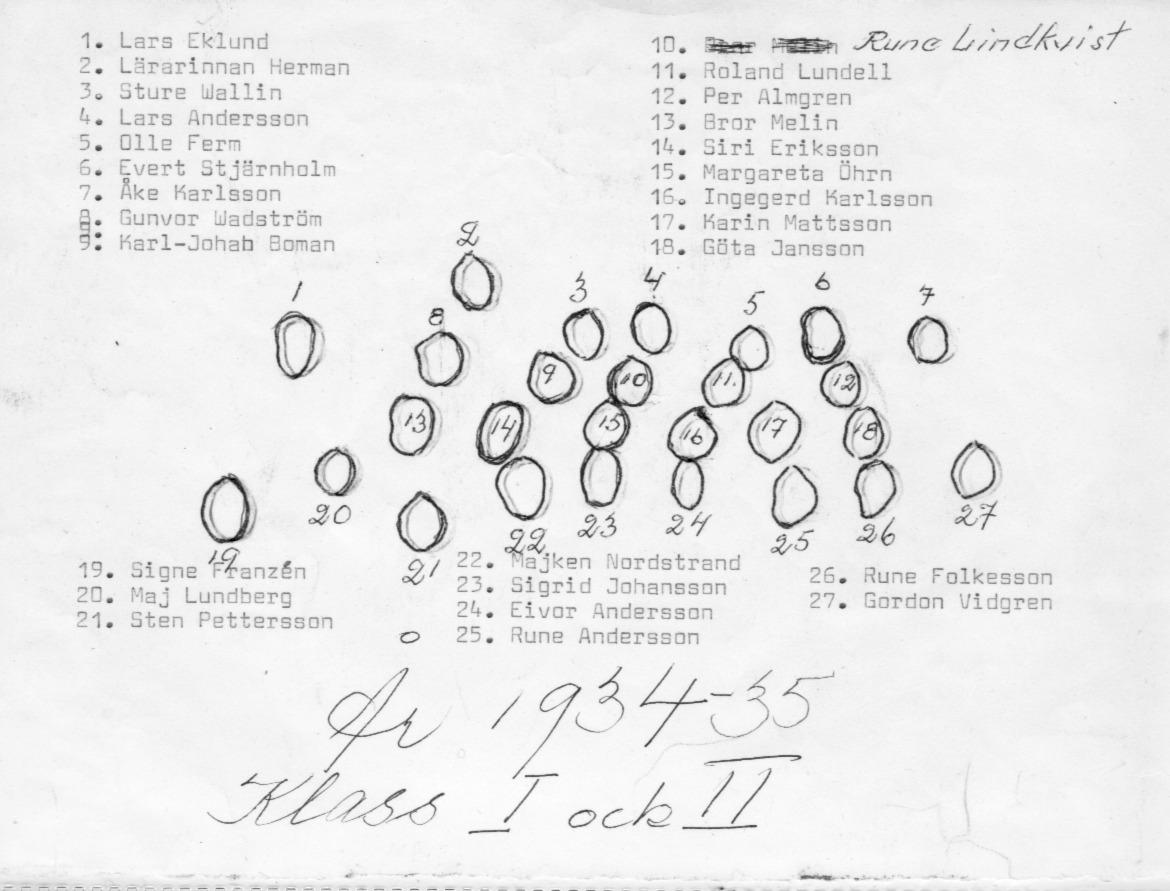 1. Lars Eklund
2. Lärarinnan Herman
3. Sture Wallin
4. Lars Andersson
5. Olle Ferm
6. Evert Stjärnholm
7. Åke Karlsson
8. Gunvor Wadström
9. Karl-Johah Boman
10. Rune Lindkvist
11. Roland Lundell
12. Per Almgren
13. Bror Melin
14. Siri Eriksson
15. Margareta Öhrn
16. Ingegerd Karlsson
17. Karin Mattsson
18. Göta Jansson
2
1 8 3 4 5 6 7
9 10 11. 12
13 14 15 16 17 18
19 20 21 22 23 24 25 26 27
19. Signe Franzén
20. Maj Lundberg
21. Sten Pettersson
22. Majken Nordstrand
23. Sigrid Johansson
24. Eivor Andersson
25. Rune Andersson
26. Rune Folkesson
27. Gordon Vidgren
År 1934-35
Klass I ock II